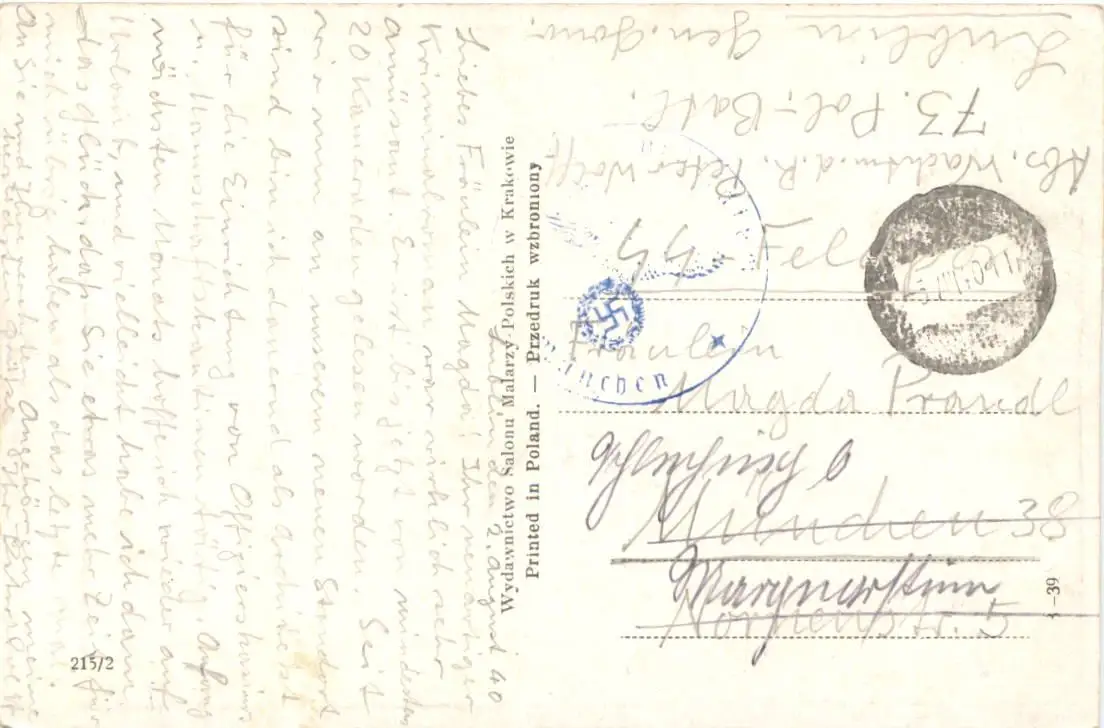 Lublin, den 2. August 40
Liebes Fräulein Magda! Ihr neuartiger
Kriminalroman war wirklich sehr
amüsant. Er ist bis jetzt von mindestens
20 Kameraden gelesen worden. Seit
wir nun an unserem neuen Standort
sind bin ich dauernd als Architekt
für die Einrichtung von Offizierskasino
u. Mannschaftskantinen tätig. Anfang
nächsten Monats hoffe ich wieder auf
Urlaub, und vielleicht habe ich dann
das Glück, daß Sie etwas mehr Zeit für
mich übrig haben als das letzte mal.
An Sie und Ihre werten Angehörigen meine
herzlichsten Grüße Ihr Peter Wolff
215/2
Wydawnictwo Salonu Malarzy Polskich w Krakowie
Printed in Poland. — Przedruk wzbroniony
Abs. Wachtm. d. R. Peter Wolff
73. Pol.-Batl.
Lublin Gen. Gouv.
München
SS-Feldpost
Fräulein
Magda Prandl
München 38
Nornenstr. 5
-39